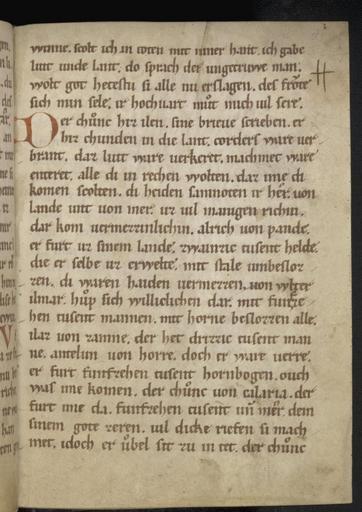 wnne. scolt ich in toten mit miner hant. ich gabe
liut unde lant. do sprach der ungetruwe man.
wolt got hetestu si alle nu erslagen. des frote
sich min sele. ir hochuart mut mich uil sere.
Der chunc hiz ilen. sine brieue scrieben. er
hiz chunden in die lant. corders ware uer
brant. daz liut ware uerkeret. machmet ware
enteret. alle di in rechen wolten. daz si ime di
komen scolten. di heiden samnoten ir her. von
lande unt von mer. ur uil manigen richin.
dar kom uermezzinlichin. alrich von pande.
er furt uz sinem lande. zwainzic tusent helde.
die er selbe uz erwelte. mit stale umbesloz
zen. di waren haiden uermezzen. uon
ilmar. hup sich willichlichen dar. mit funfze
hen tusent mannen. mit horne beslozzen alle.
ilaz uon zamne. der het drizzic tusent man
ne. antelun uon horre. doch er ware uerre.
er furt funfzehen tusent hornbogen. ouch
was ime komen. der chunc uon cilaria. der
furt ime da. funfzehen tusent unt mer. dem
sinem gote zeren. uil dicke riefen si mach
met. idoch er ubel sit zu in tet. der chunc